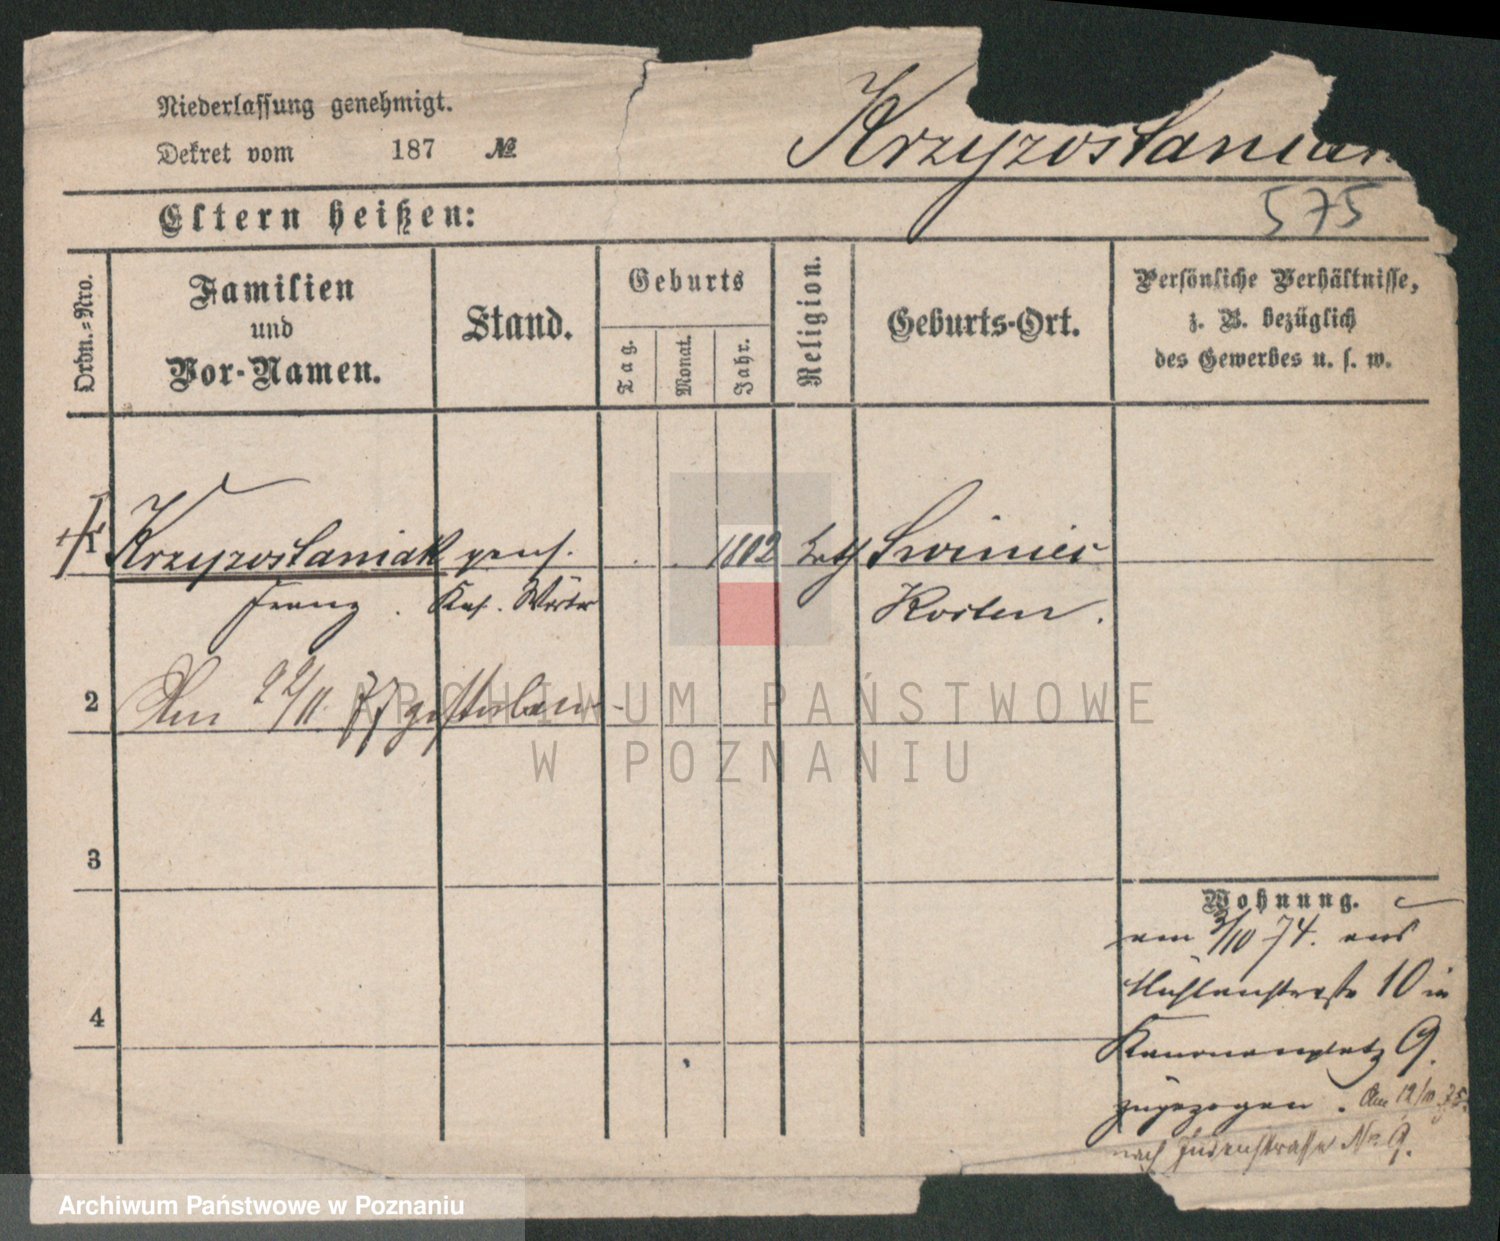 Niederlassung genehmigt.
Dekret vom 187 №
Krzyzostaniak
575
Eltern heißen:
Ordn.=Nro.
Familien
und
Vor-Namen.
Stand.
Geburts
Tag.
Monat.
Jahr.
Religion.
Geburts-Ort.
Persönliche Verhältnisse,
z. B. bezüglich
des Gewerbes u. s. w.
1 Krzyzostaniak pens. 1802 kath Swiniec
Franz. Kas. Wärter Kosten.
2 Am 22/11. 77 gestorben
3
4
Wohnung.
am 3/10 74. aus
Mühlenstraße 10 in
Kanonenplatz 9.
zugezogen. Am 12/10 75.
nach Judenstrasse No 9.
ARCHIWUM PAŃSTWOWE
W POZNANIU
Archiwum Państwowe w Poznaniu